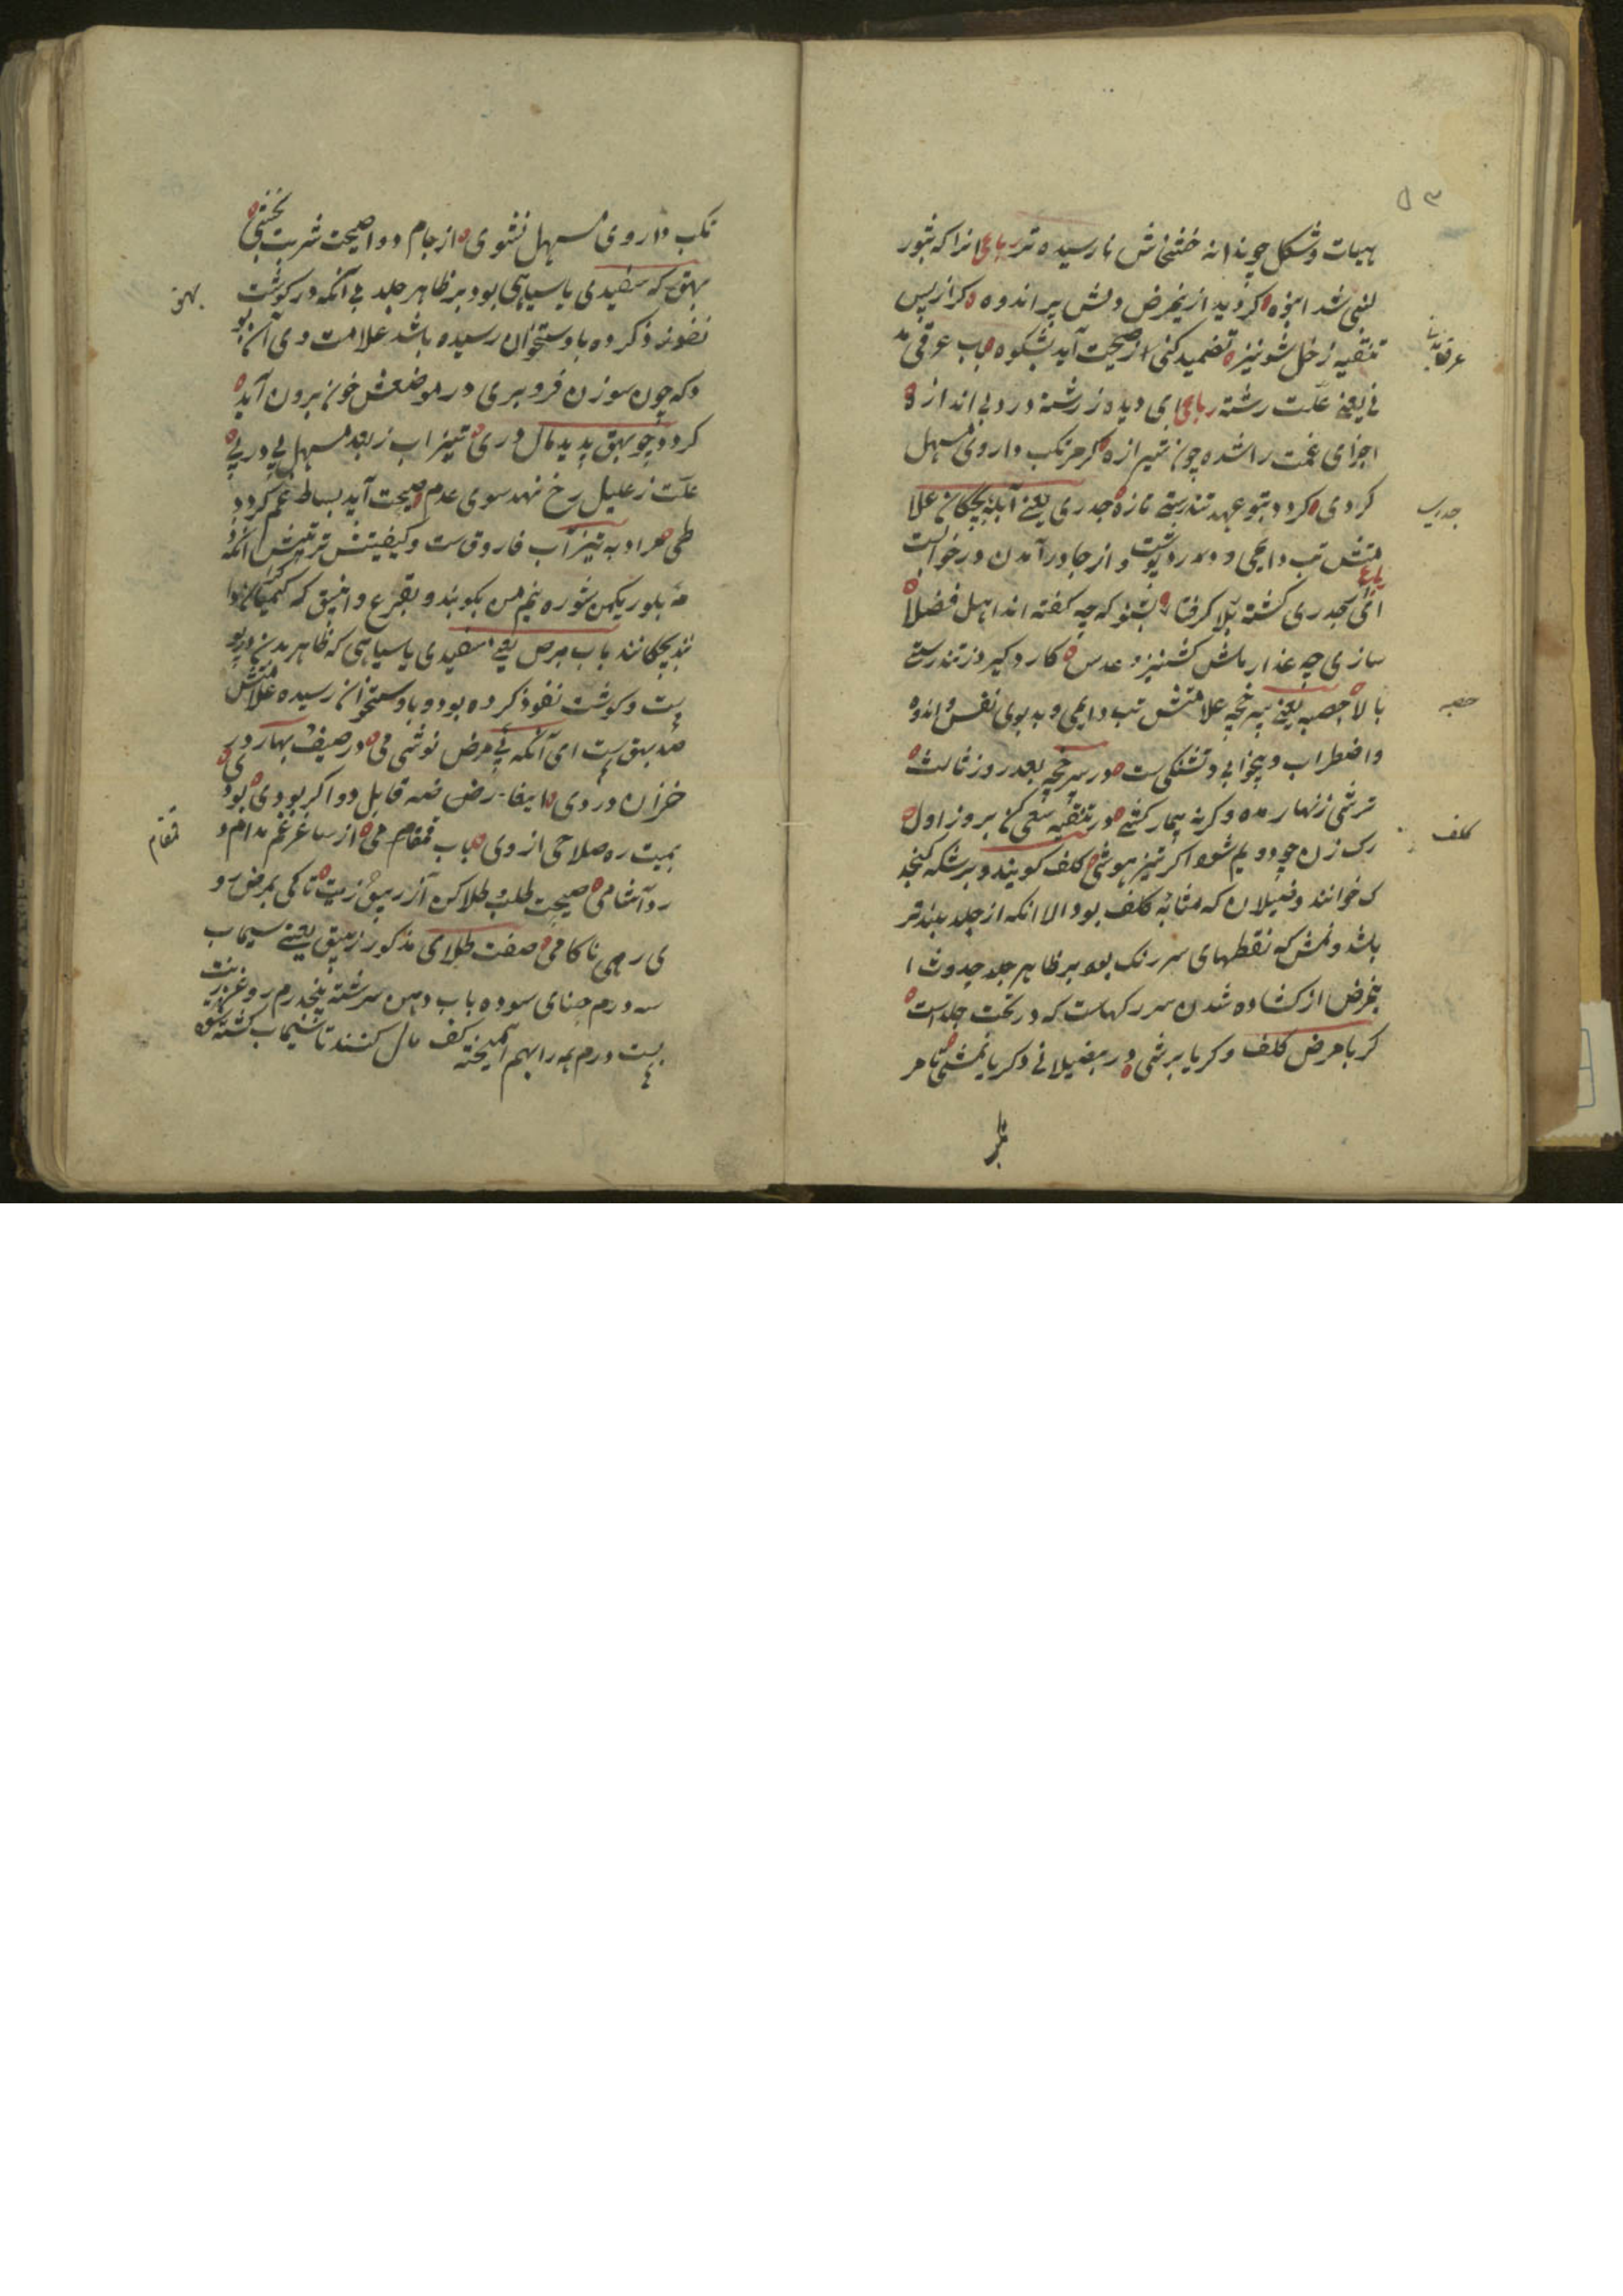 ۵۳
هیات و شکل چو بذانه خشخاش نارسیده تر رباعی انرا که بثور
لبنی شد انبوه گردید ازین مرض دلش پر اندوه گر از پس
تنقیه ز خل شونیز تضمید کنی صحت آید بشکوه باب عرق مد
نی یعنی علت رشته رباعی ای دیده ز رشته درد بی اندازه
اجزای غمت را شده چون شیرازه گر مرتکب داروی مسهل
گردی گردد بتو عهد تندرستی تازه جدری یعنی آبله چیچکان علا
متش تب دایمی و درد پشت و از جا درآمدن در خوابست
رباعی
ای از جدری گشته بلا گرفتار بشنو که چه گفته اند اهل فضلا
سازی چه غذا ماش کشنیز و عدس کارد گیر و ز تندرستی
بالا حصبه یعنی سرخچه علامتش تب دایمی و بدبوی نفس و اندوه
و اضطراب و بیخوابی و تشنگی ست در سرخچه بعد روز ثالث
ترشی زنهار مده وگرنه بیمار کشی در تنقیه سعی کن بروز اول
رگ زن چو دویم شود اگر تیز هوشی کلف گویند و برشکه کنجد
ک خوانند و خیلان که مشابه کلف بود الا انکه از جلد بلندتر
باشد و نمش که نقطهای سرخ رنگ بود بر ظاهر جلد حدوث ا
ینمرض از گشاده شدن سر رگهاست که در تحت جلد است
گر با مرض کلف وگر با برشی ور بخیلانی وگر با نمشی تا مر
عرق مدنی
جدری
حصبه
کلف
تکب داروی مسهل نشوی از جام دوا صحت شربت نچشی
بهق که سفیدی یا سیاهی بود بر ظاهر جلد بی آنکه در گوشت
نفوذ کرده باستخوان رسیده باشد علامت وی آن بو
د که چون سوزن فروبری در موضعش خون برون آید
گردد چو بهق پدید مال دری تیزاب ز بعد مسهل پی در پی
علت ز علیل رخ نهد سوی عدم صحت آید بساط غم گردد
طی مراد به تیزآب فاروقست و کیفیتش ترتیبش آنکه
مه بلور یکمن شوره نیم من بکوبند و بقرع و انبیق که کیمیاگران دا
نند بچکانند باب برص یعنی سفیدی یا سیاهی که ظاهر بدن بود
پست و گوشت نفوذ کرده بود و باستخوان رسیده علامتش
ضد بهق ست ای آنکه پی مرض نوشی می در صیف بهار و در
خزان و در دی
بمیت ره صلاحی از وی باب قمقام می از ساغر غم مدام و
ردآشامی صحت طلب طلا کن از زیبق زیت تا کی بمرض رو
ی رهی ناکامی صفت طلای مذکور زیبق یعنی سیماب
سه درم حنای سوده باب دهن سرشته پنجدرم روغن زیت
بیست درم همه را بهم آمیخته کف مال کنند تا سیماب کشته شود
بهق
قمقام